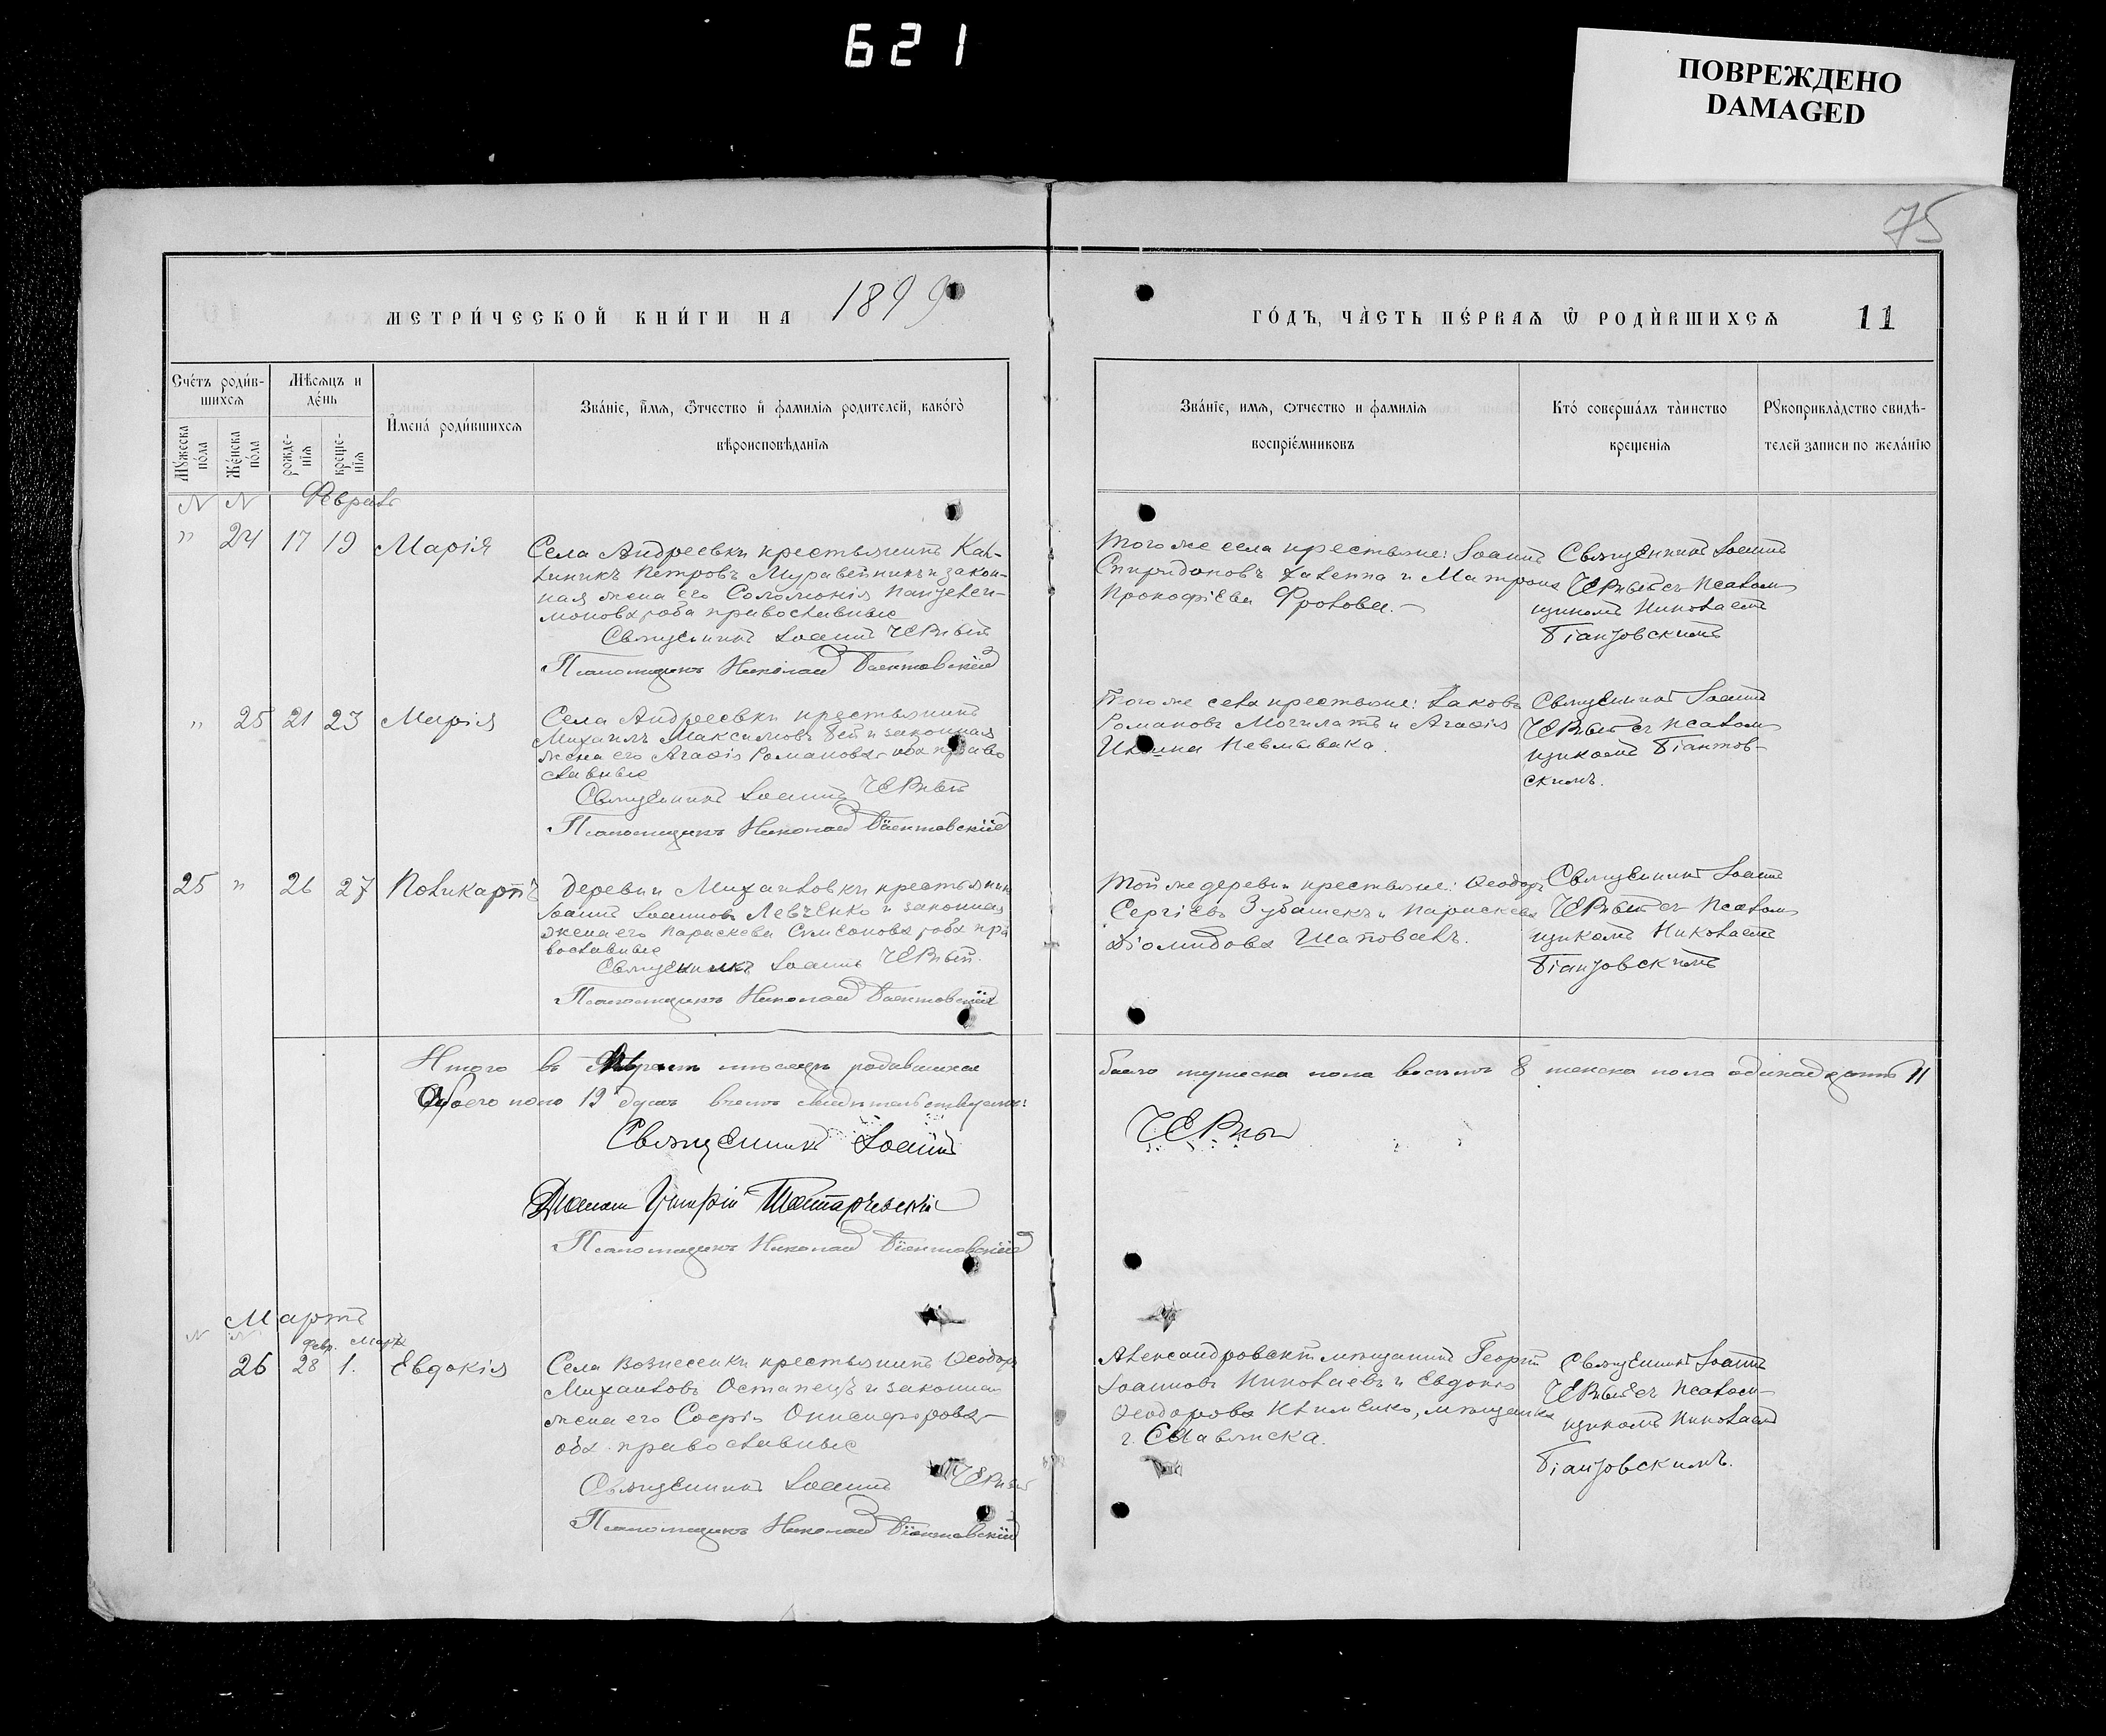 621
ПОВРЕЖДЕНО
DAMAGED
75
МЕТРИ́ЧЕСКОЙ КНИ́ГИ НА 1899
ГО́ДЪ, ЧА́СТЬ ПЕ́РВАЯ Ѿ РОДИ́ВШИХСЯ 11
Сче́тъ роди́в-
шихся
Мѣсяцъ и
де́нь
Мꙋжеска
по́ла
Же́нска
по́ла
рожде-
нія
креще-
нія
И҆мена́ роди́вшихся
Зва́ніе, и҆́мя, ѻ҆́тчество и҆ фамилія родителей, како́гѡ
вѣроисповѣданія
Зва́ніе, имя, ѻтчество и фамилія
воспріе́мниковъ
Кто́ соверша́лъ та́инство
крещенія
Рꙋкоприкла́дство свидѣ-
телей записи по жела́нію
N N Февраль
" 24 17 19 Марія
Села Андреевки крестьянинъ Кал-
линикъ Петровъ Муравейникъ и закон-
ная жена его Соломонія Пантелеи-
монова, оба православные
Священникъ Іоаннъ Черный
Псаломщикъ Николай Біантовскій
Того же села крестьяне: Іоаннъ
Спиридоновъ Халеппа и Матрона
Прокофіева Фролова.
Священникъ Іоаннъ
Черный съ псалом-
щикомъ Николаемъ
Біантовскимъ
" 25 21 23 Марія
Села Андреевки крестьянинъ
Михаилъ Максимовъ Бей и законная
жена его Агаѳія Романова, оба право
славные
Священникъ Іоаннъ Черный
Псаломщикъ Николай Біантовскій
Того же села крестьяне: Іаковъ
Романовъ Могилатъ и Агаѳія
Невмывака.
Священникъ Іоаннъ
Черный съ псалом-
щикомъ Біантов-
скимъ.
25 " 26 27 Поликарпъ
Деревни Михайловки крестьянин
Іоаннъ Іоанновъ Левченко и законная
жена его Параскева Симеонова, оба пра
вославные
Священникъ Іоаннъ Черный.
Псаломщикъ Николай Біантовскій
Той же деревни крестьяне: Ѳеодоръ
Сергіевъ Зубашекъ и Параскева
Діомидова Шаповалъ.
Священникъ Іоаннъ
Черный съ псалом-
щикомъ Николаемъ
Біантовскимъ
Итого въ Февралѣ мѣсяцѣ родившихся
было мужеска пола восемь 8 женска пола одинадцать 11
Обоего пола 19 душъ въ чемъ свидѣтельствуемъ:
Священникъ Іоаннъ
Черный
Псаломщикъ Николай Біантовскій
Мартъ
N N Февр. Март
26 28 1. Евдокія
Села Вознесенки крестьянинъ Ѳеодоръ
Михаиловъ Остапецъ и законная
жена его Софія Онисифорова
оба православные
Священникъ Іоаннъ Черный
Псаломщикъ Николай Біантовскій
Александровскій мѣщанинъ Георгій
Іоанновъ Николаевъ и Евдокія
Ѳеодорова Клименко, мѣщанка
г. Славянска.
Священникъ Іоаннъ
Черный съ псалом-
щикомъ Николаемъ
Біантовскимъ.